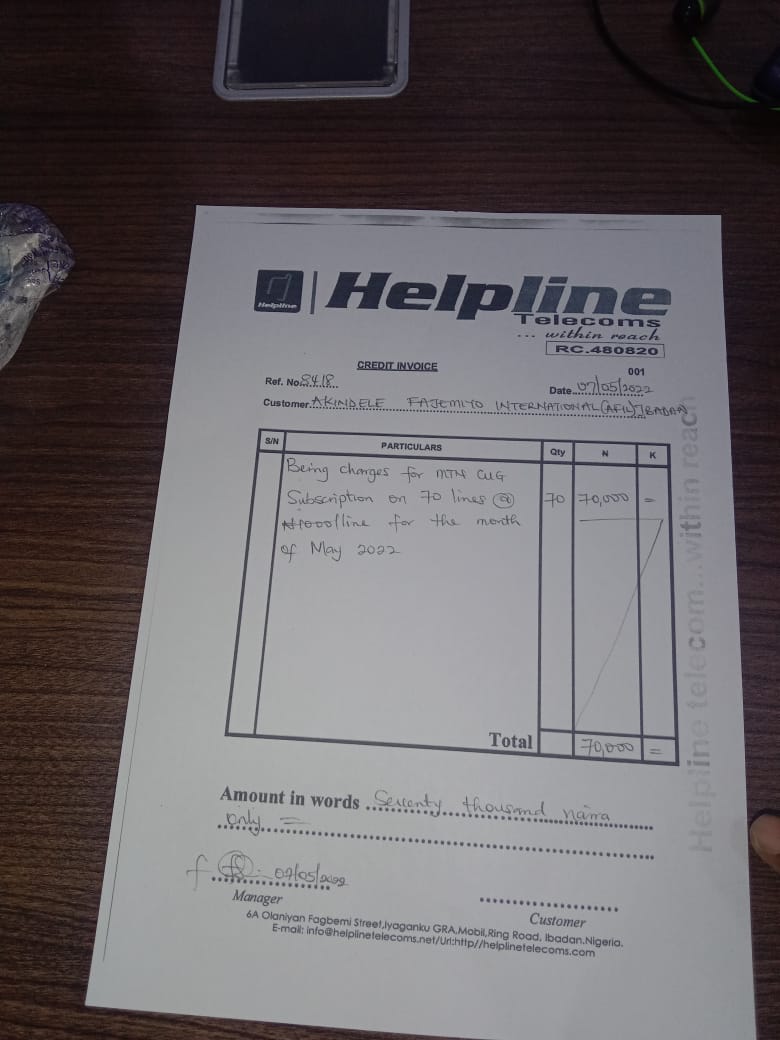 Helpline
Helpline
Telecoms
... within reach
RC.480820
CREDIT INVOICE
001
Ref. No. S418
Date 07/05/2022
Customer AKINDELE FAJEMIYO INTERNATIONAL (AFIL) IBADAN
S/N PARTICULARS Qty N K
Being charges for MTN CUG
Subscription on 70 lines @ 70 70,000 =
₦1000/line for the month
of May 2022
Total 70,000 =
Amount in words Seventy thousand naira
only =
f 07/05/2022
Manager
Customer
6A Olaniyan Fagbemi Street,Iyaganku GRA,Mobil,Ring Road, Ibadan.Nigeria.
E-mail: info@helplinetelecoms.net/Url:http//helplinetelecoms.com
Helpline telecom...within reach